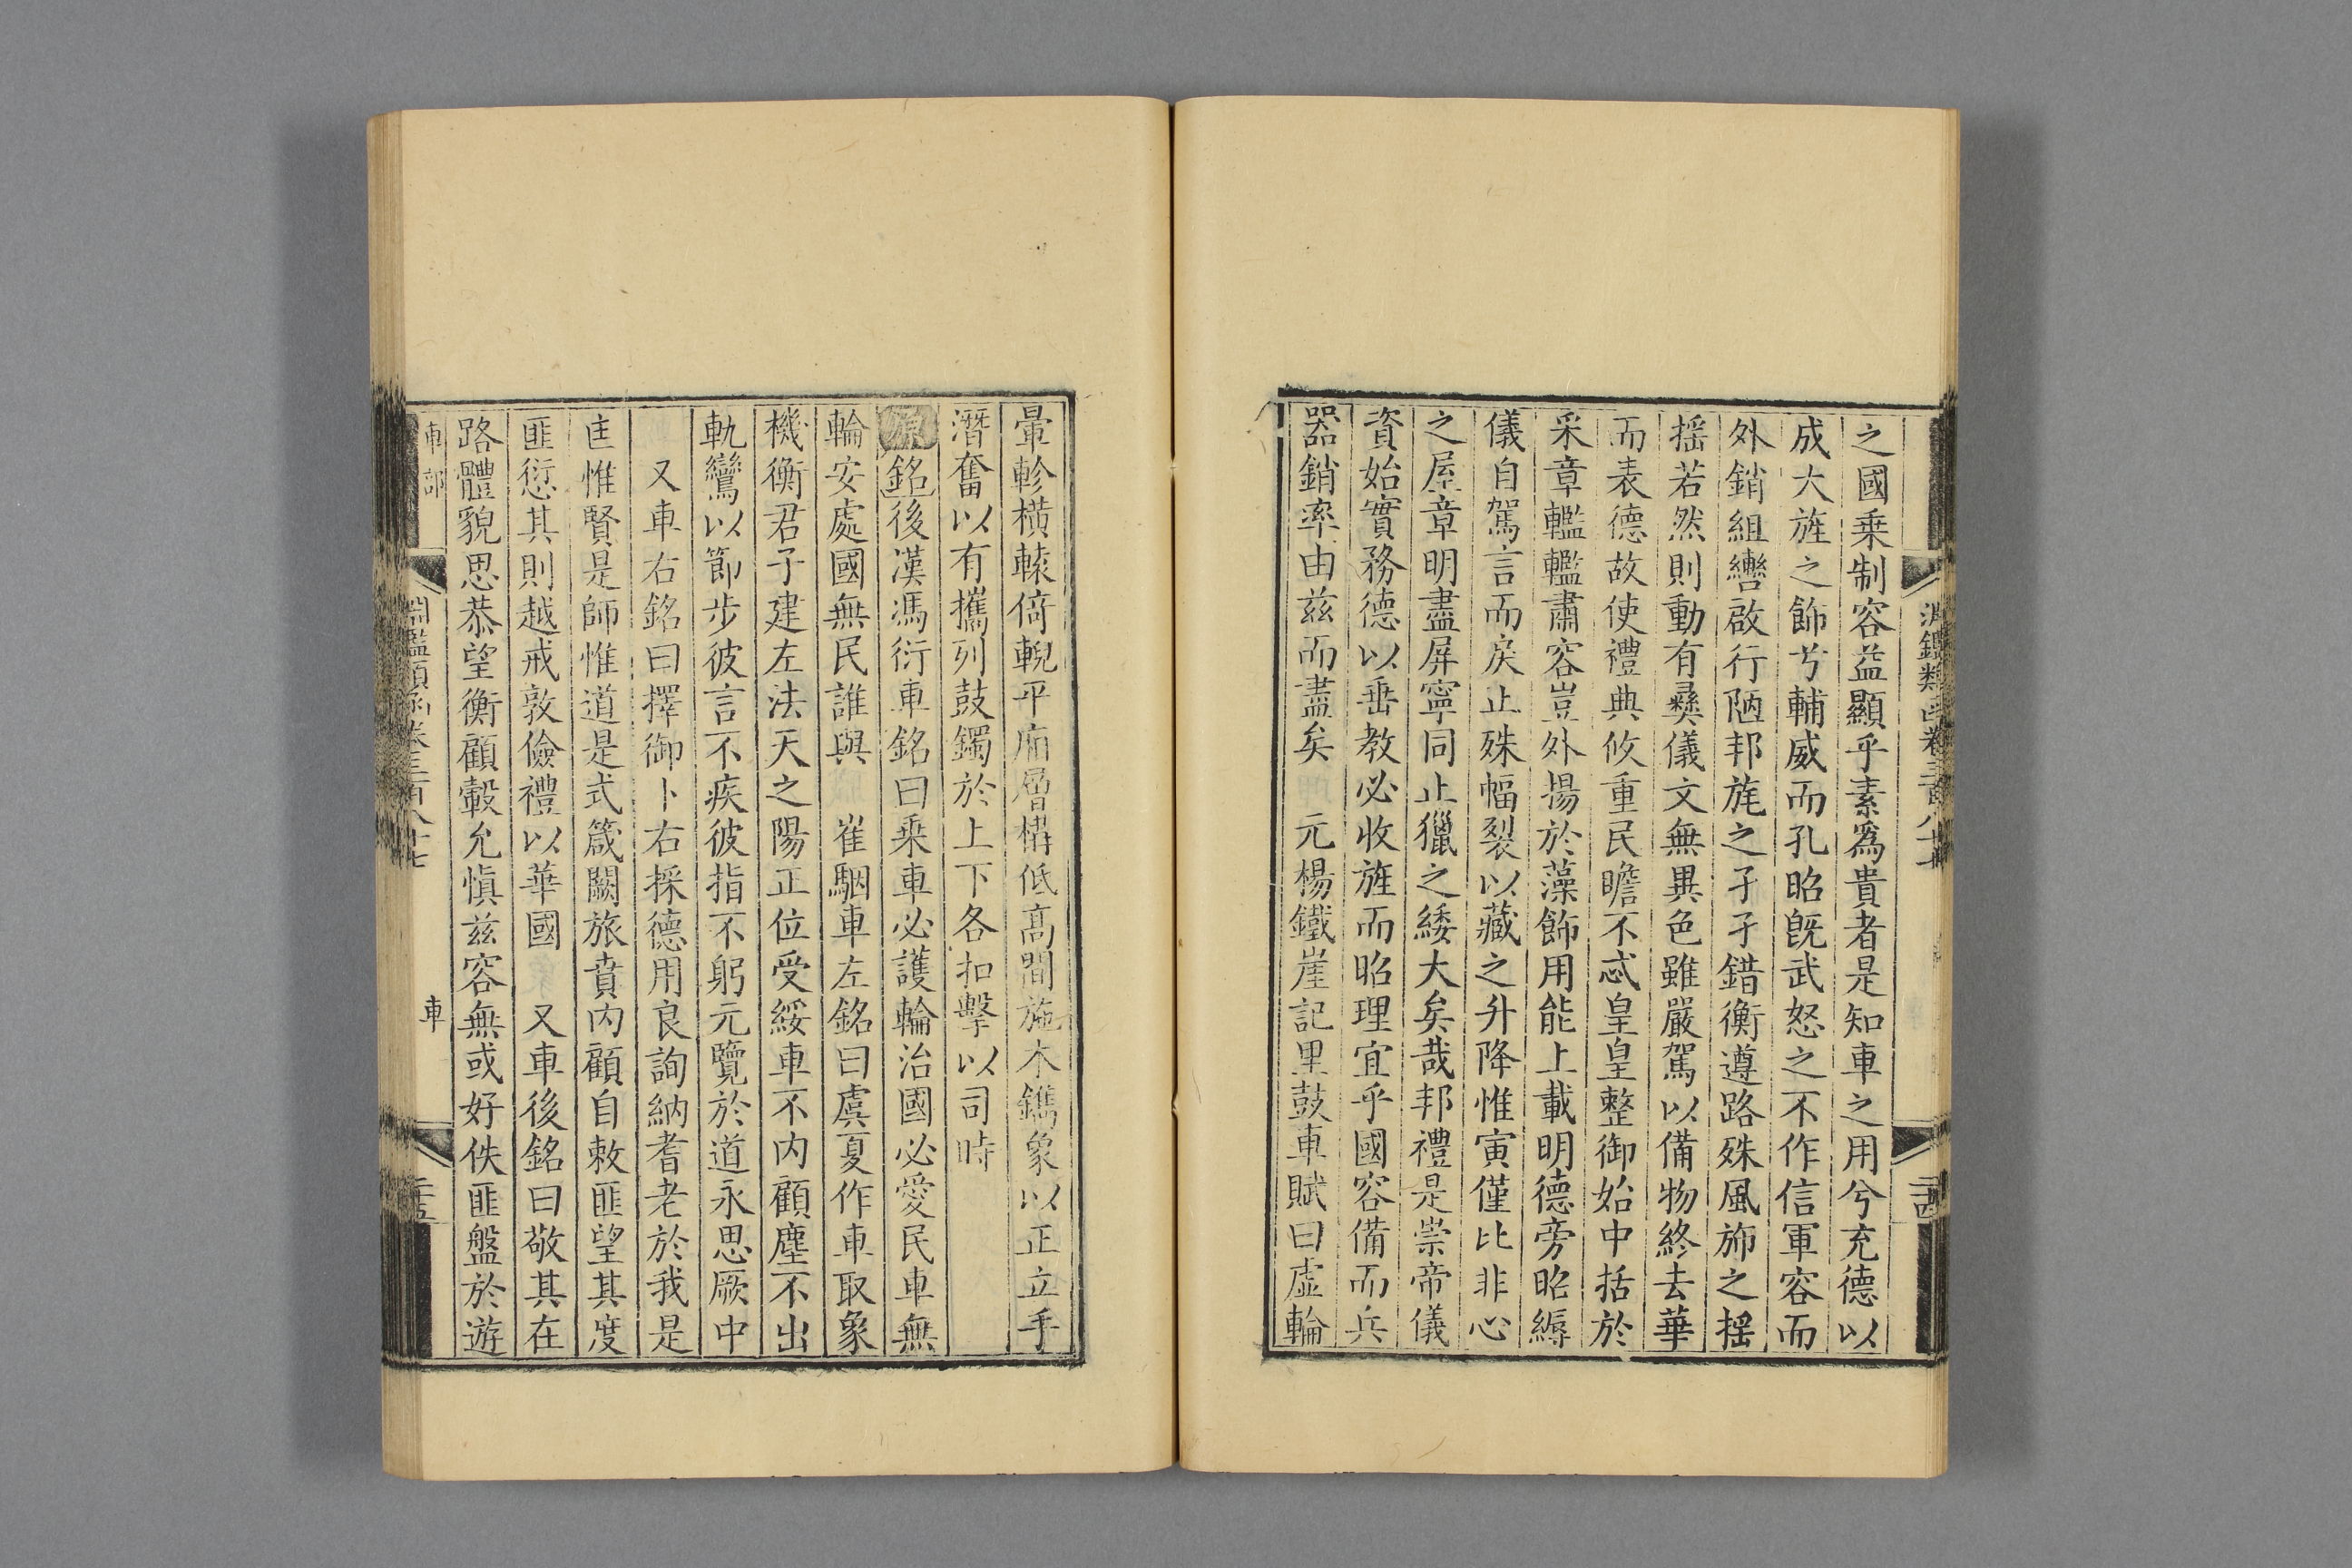 淵鑑類函卷三百八十七
二十四
之國乗制容益顯乎素爲貴者是知車之用兮充德以
成大旌之飾兮輔威而孔昭旣武怒之不作信軍容而
外銷組轡啟行陋邦旄之孑孑錯衡遵路殊風斾之揺
揺若然則動有彝儀文無異色雖嚴駕以備物終去華
而表德故使禮典攸重民瞻不忒皇皇整御始中括於
采章轞轞肅容豈外揚於藻飾用能上載明德旁昭縟
儀自駕言而戾止殊幅裂以藏之升降惟寅僅比非心
之屋章明盡屏寧同止獵之緌大矣哉邦禮是崇帝儀
資始實務德以垂教必收旌而昭理宜乎國容備而兵
器銷率由茲而盡矣　元楊鐵崖記里鼓車賦曰虛輪
暈軫橫轅倚輗平廂層構低髙間施木鐫象以正立手
潛奮以有攜列鼓鐲於上下各扣擊以司時
原銘後漢馮衍車銘曰乘車必護輪治國必愛民車無
輪安處國無民誰與　崔駰車左銘曰虞夏作車取象
機衡君子建左法天之陽正位受綏車不内顧塵不出
軌鸞以節步彼言不疾彼指不躬元覽於道永思厥中
又車右銘曰擇御卜右採德用良詢納耆老於我是
匡惟賢是師惟道是式箴闕旅賁内顧自敕匪望其度
匪愆其則越戒敦儉禮以華國　又車後銘曰敬其在
路體貌思恭望衡顧轂允愼茲容無或好佚匪盤於遊
車部
淵鑑類函卷三百八十七
車
二十五